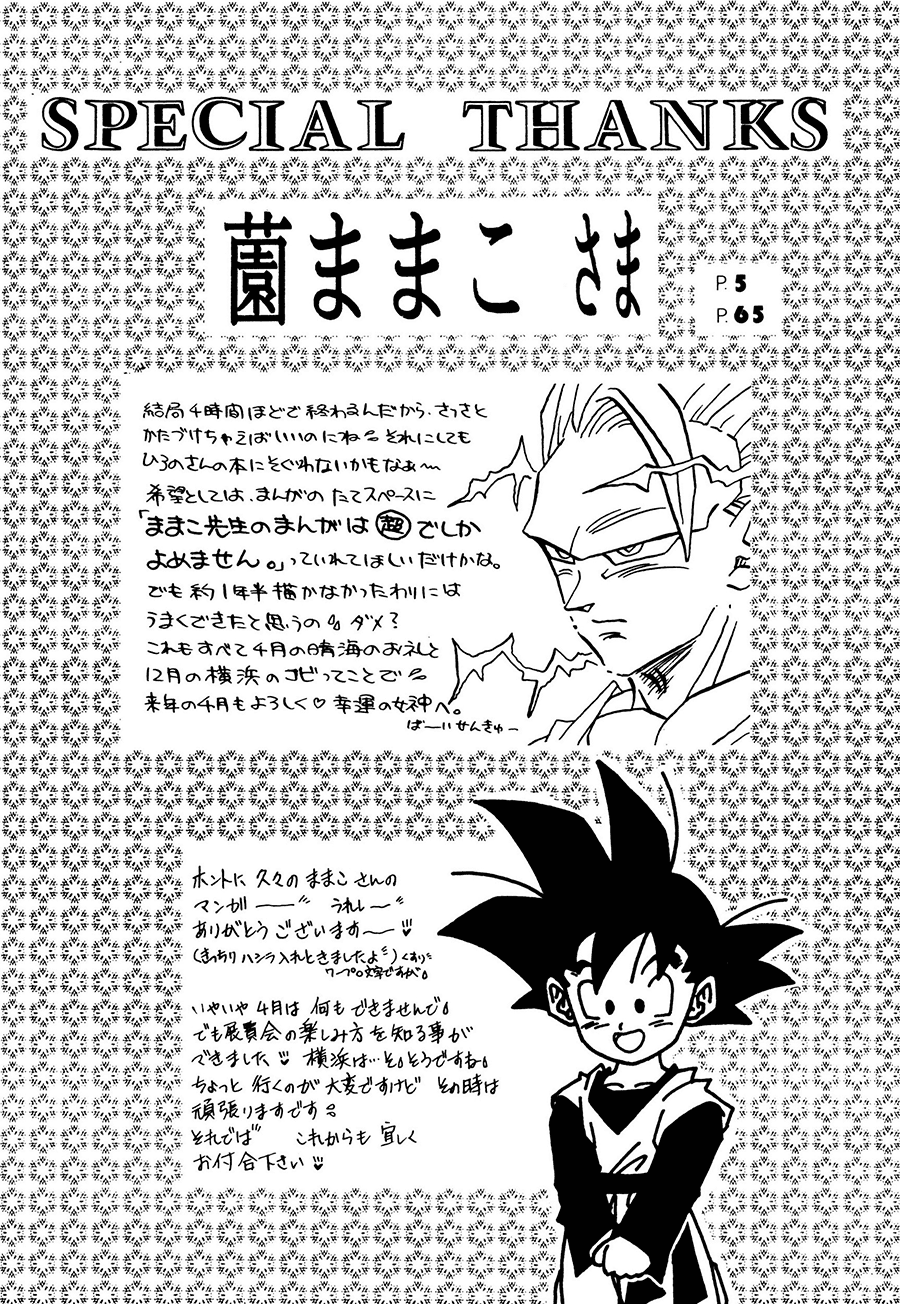 SPECIAL THANKS
薗ままこ さま
P. 5
P. 65
結局4時間ほどで終わるんだから、さっさと
かたづけちゃえばいいのにね。それにしても
ひろのさんの本にそぐわないかもなぁ〜
希望としては、まんがの たてスペースに
「ままこ先生のまんがは超でしか
よめません。」っていれてほしいだけかな。
でも約1年半描かなかったわりには
うまくできたと思うの。ダメ?
これもすべて4月の晴海のお礼と
12月の横浜のコビってことで。
来年の4月もよろしく♡幸運の女神へ。
ばーいせんきゅー
ホントに 久々の ままこ さんの
マンガ ー〃 うれしー〃
ありがとう ございます〜
(きっちり ハシラ入れときましたよ〃)くすり〃
ワープロ文字ですが。
いやいや 4月は 何も できませんで。
でも展覧会の楽しみ方を知る事が
できました 横浜は…そ。そうですね。
ちょっと 行くのが 大変ですけど その時は
頑張りますです。
それでは〃 これからも 宜しく
お付合下さい